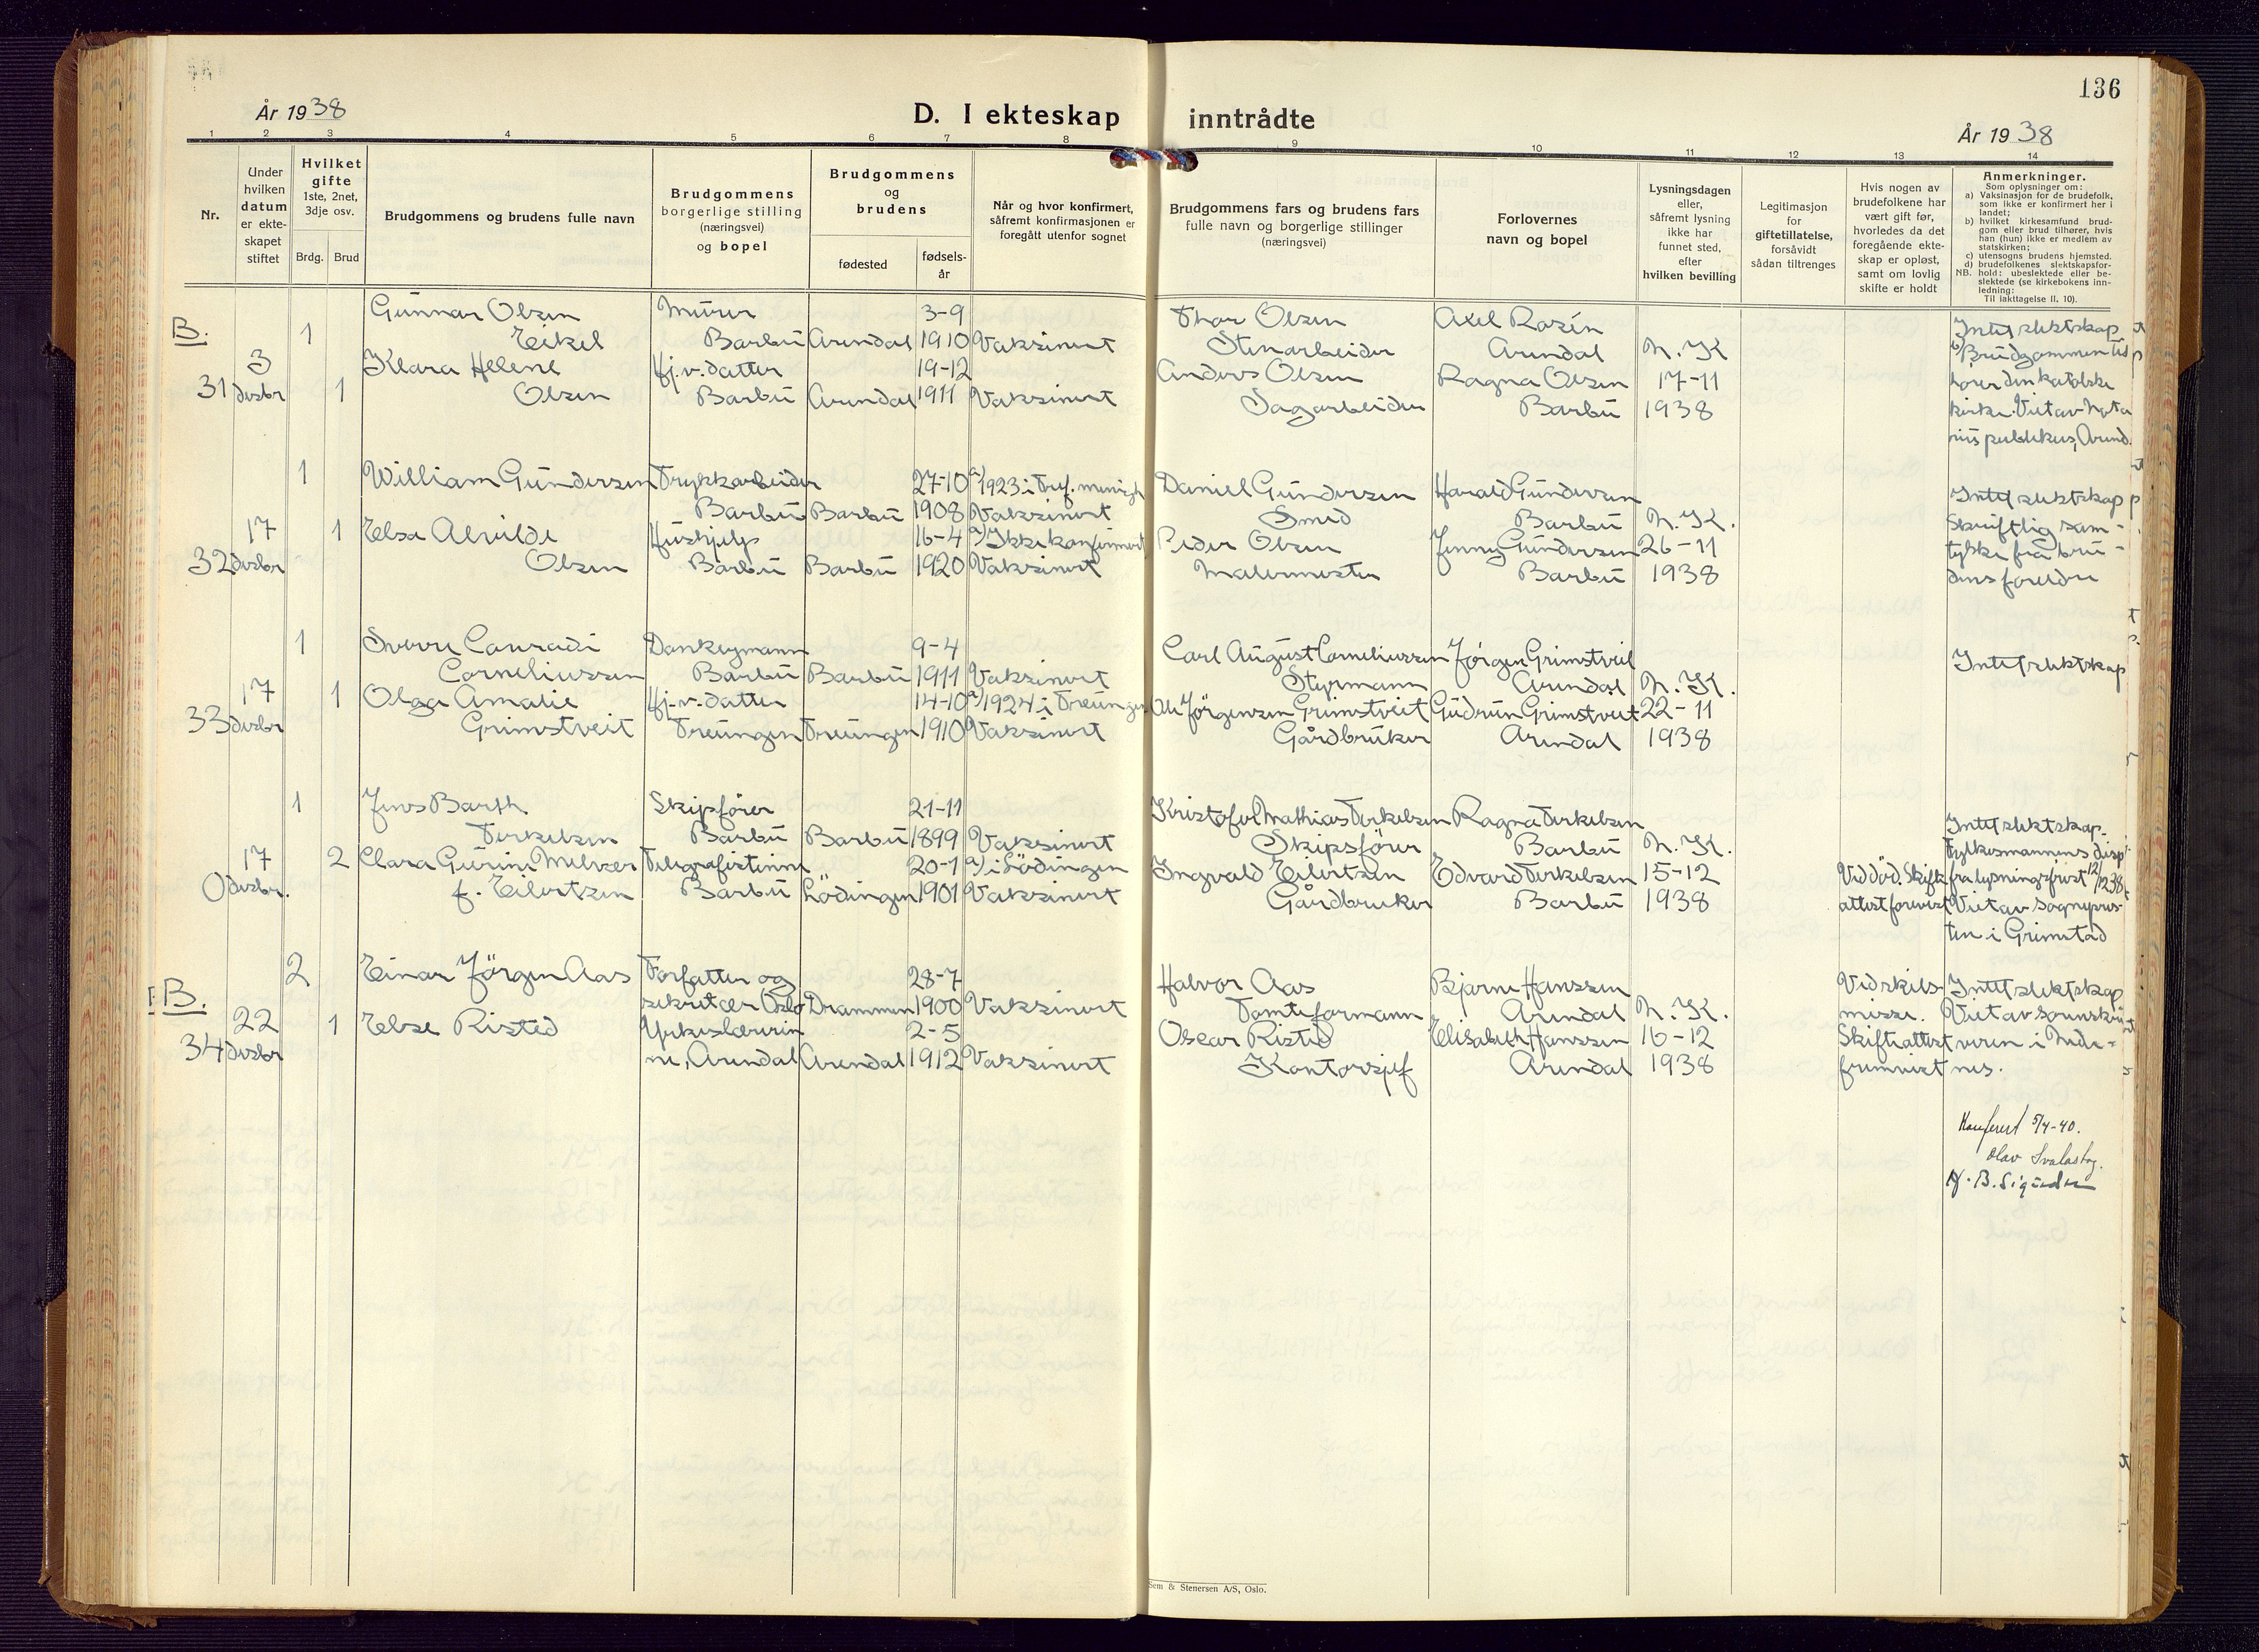 136
År 1938
D. I ekteskap inntrådte
År 1938
1 2 3 4 5 6 7 8 9 10 11 12 13 14
Nr.
Under
hvilken
datum
er ekte-
skapet
stiftet
Hvilket
gifte
1ste, 2net,
3dje osv.
Brdg. Brud
Brudgommens og brudens fulle navn
Brudgommens
borgerlige stilling
(næringsvei)
og bopel
Brudgommens
og
brudens
fødested
fødsels-
år
Når og hvor konfirmert,
såfremt konfirmasjonen er
foregått utenfor sognet
Brudgommens fars og brudens fars
fulle navn og borgerlige stillinger
(næringsvei)
Forlovernes
navn og bopel
Lysningsdagen
eller,
såfremt lysning
ikke har
funnet sted,
efter
hvilken bevilling
Legitimasjon
for
giftetillatelse,
forsåvidt
sådan tiltrenges
Hvis nogen av
brudefolkene har
vært gift før,
hvorledes da det
foregående ekte-
skap er opløst,
samt om lovlig
skifte er holdt
Anmerkninger.
Som oplysninger om:
a) Vaksinasjon for de brudefolk,
som ikke er konfirmert her i
landet;
b) hvilket kirkesamfund brud-
gom eller brud tilhører, hvis
han (hun) ikke er medlem av
statskirken;
c) utensogns brudens hjemsted.
d) brudefolkenes slektskapsfor-
NB. hold: ubeslektede eller be-
slektede (se kirkebokens inn-
ledning:
Til iakttagelse II, 10).
B.
31
3
desbr
1
Gunnar Olsen
Eikel
Murer
Barbu
Arendal
3-9
1910
Vaksinert
Thor Olsen
Stenarbeider
Axel Rosén
Arendal
1
Klara Helene
Olsen
Hj.v.datter
Barbu
Arendal
19-12
1911
Vaksinert
Anders Olsen
Sagarbeider
Ragna Olsen
Barbu
N.K
17-11
1938
Intet slektskap
b) Brudgommen til
hører den katolske
kirke. Viet av Nota
rius publicus, Arend.
32
17
desbr
1
William Gundersen
Trykkarbeider
Barbu
Barbu
27-10
1908
a) 1923 i Tref. menigh
Vaksinert
Daniel Gundersen
Smed
Harald Gundersen
Barbu
1
Elsa Alvilde
Olsen
Hushjelp
Barbu
Barbu
16-4
1920
a) Ikke konfirmert
Vaksinert
Peder Olsen
Malermester
Jenny Gundersen
Barbu
N.K.
26-11
1938
Intet slektskap
Skriftlig sam-
tykke fra bru-
dens foreldre
33
17
desbr
1
Sverre Conradi
Corneliussen
Donkeymann
Barbu
Barbu
9-4
1911
Vaksinert
Carl August Corneliussen
Styrmann
Jörgen Grimstveit
Arendal
1
Olga Amalie
Grimstveit
Hj.v.datter
Treungen
Treungen
14-10
1910
a) 1924 i Treungen
Vaksinert
Ole Jörgensen Grimstveit
Gårdbruker
Gudrun Grimstveit
Arendal
N.K.
22-11
1938
Intet slektskap
0
17
desbr.
1
Jens Barth
Terkelsen
Skipförer
Barbu
Barbu
21-11
1899
Vaksinert
Kristofer Mathias Terkelsen
Skipsförer
Ragna Terkelsen
Barbu
2
Clara Gurine Melvær
f. Eilertsen
Telegrafistinne
Barbu
Lödingen
20-1
1901
a) i Lödingen
Vaksinert
Ingvald Eilertsen
Gårdbruker
Edvard Terkelsen
Barbu
N.K.
15-12
1938
Ved död. Skifte
attest forevist
Intet slektskap.
Fylkesmannens disp.
fra lysningsfrist 12/12 38
Viet av sognepres-
ten i Grimstad
B.
34
22
desbr
2
Einar Jörgen Aas
Forfatter og
sekretær, Oslo
Drammen
28-7
1900
Vaksinert
Halvor Aas
Tomteformann
Bjarne Hanssen
Arendal
1
Else Risted
Yrkeslærerin
ne, Arendal
Arendal
2-5
1912
Vaksinert
Oscar Risted
Kontorsjef
Elisabeth Hanssen
Arendal
N.K.
16-12
1938
Ved skils-
misse.
Skifteattest
fremvist
Intet slektskap
Viet av sorenskri
veren i Nede-
nes.
Konferert 5/4-40.
Olav Svalastog.
Sem & Stenersen A/S, Oslo.